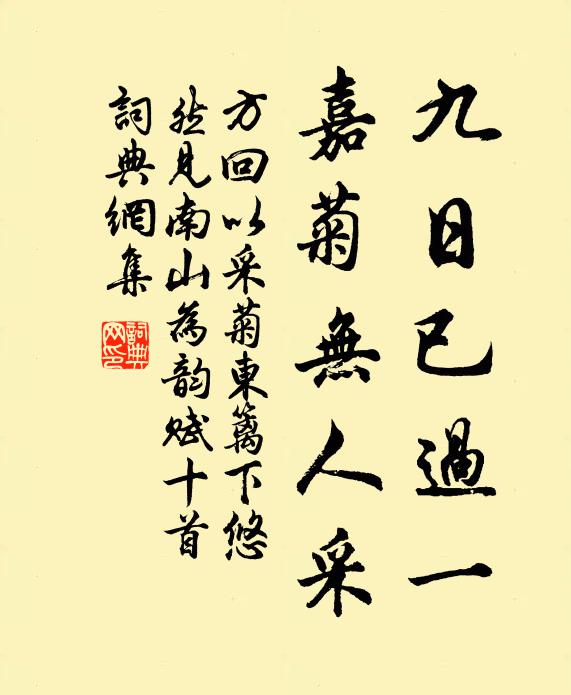 九日已過一
嘉菊無人采
方回以采菊東籬下悠
然見南山為韵賦十首
詞典網集
詞典網印